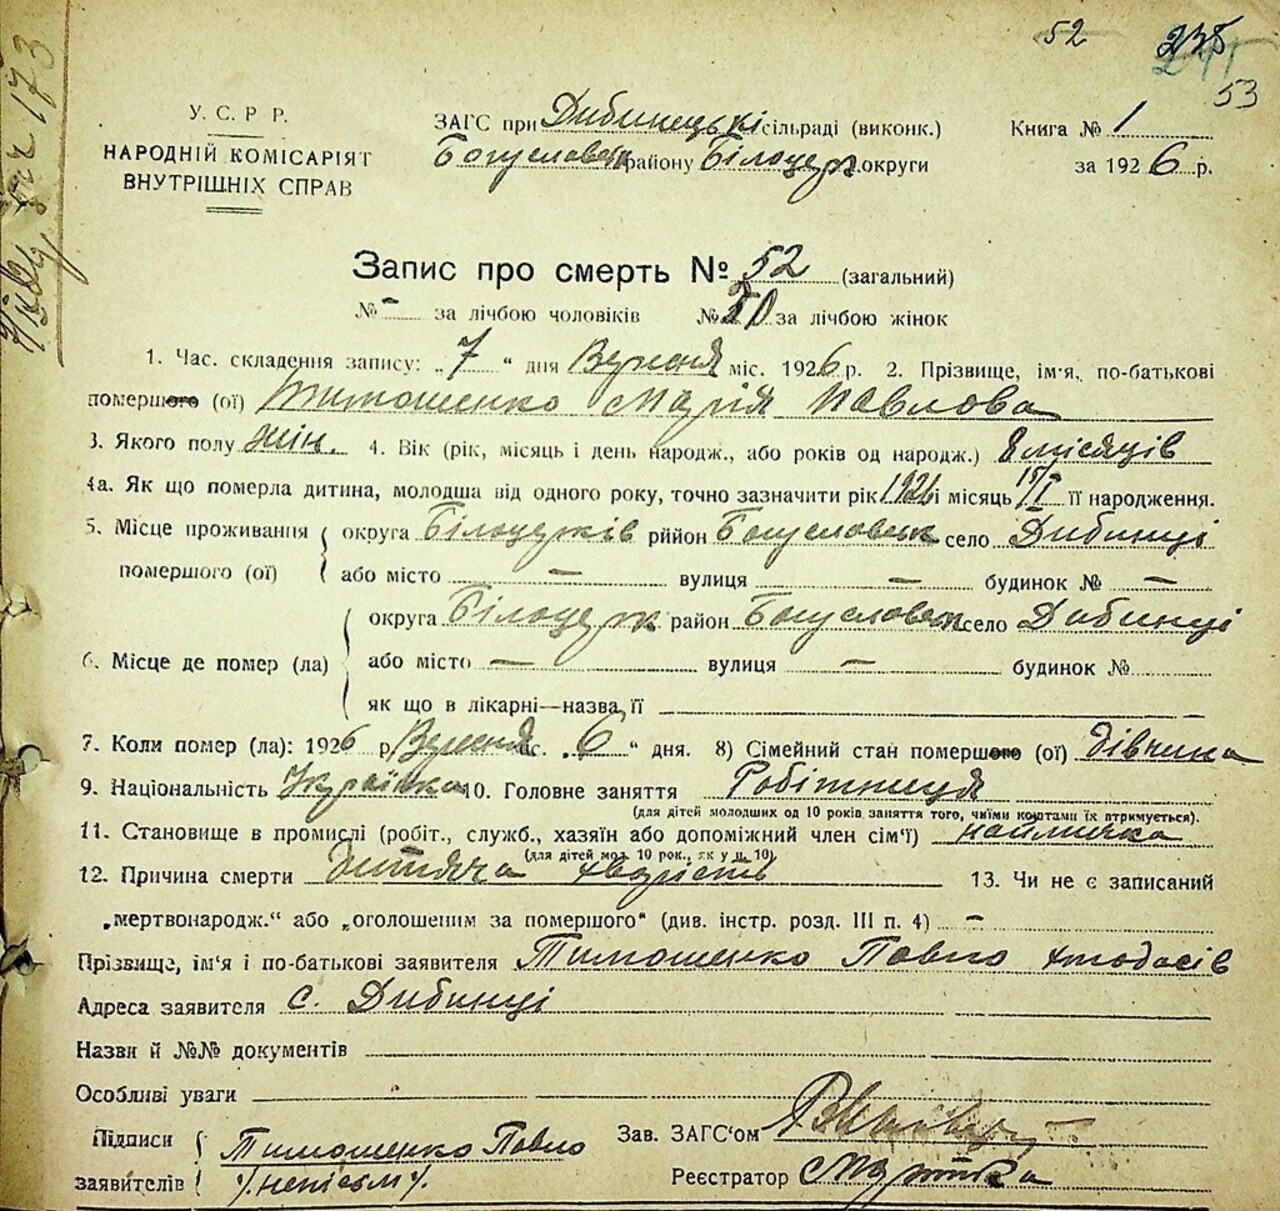 52 235
53
У. С. Р Р.
НАРОДНІЙ КОМІСАРІЯТ
ВНУТРІШНІХ СПРАВ
ЗАГС при Дибинецькі сільраді (виконк.)
Богуславськ району Білоцерк. округи
Книга № 1
за 1926 р.
Запис про смерть № 52 (загальний)
№ - за лічбою чоловіків № 20 за лічбою жінок
1. Час. складення запису: „ 7 “ дня Вересня міс. 1926 р. 2. Прізвище, ім'я, по-батькові
помершого (ої) Тимошенко Марія Павлова
3. Якого полу жін. 4. Вік (рік, місяць і день народж., або років од народж.) 8 місяців
4а. Як що померла дитина, молодша від одного року, точно зазначити рік 1926 і місяць 15/I її народження.
5. Місце проживання округа Білоцерків рйион Богуславськ село Дибинці
помершого (ої) або місто — вулиця — будинок № —
округа Білоцерк район Богуславськ село Дибинці
6. Місце де помер (ла) або місто — вулиця — будинок №
як що в лікарні—назва її
7. Коли помер (ла): 1926 р Вересня с. „ 6 “ дня. 8) Сімейний стан помершого (ої) дівчина
9. Національність Українка 10. Головне заняття Робітниця
(для дітей молодших од 10 років заняття того, чиїми коштами їх втримується).
11. Становище в промислі (робіт., служб., хазяїн або допоміжний член сім'ї) наймичка
(для дітей мол. 10 рок., як у п. 10)
12. Причина смерти Дитяча 13. Чи не є записаний
„мертвонародж.“ або „оголошеним за помершого“ (див. інстр. розд. III п. 4) -
Прізвище, ім'я і по-батькові заявителя Тимошенко Павло
Адреса заявителя с. Дибинці
Назви й №№ документів
Особливі уваги
Підписи Тимошенко Павло
заявителів
Зав. ЗАГС'ом
Реєстратор